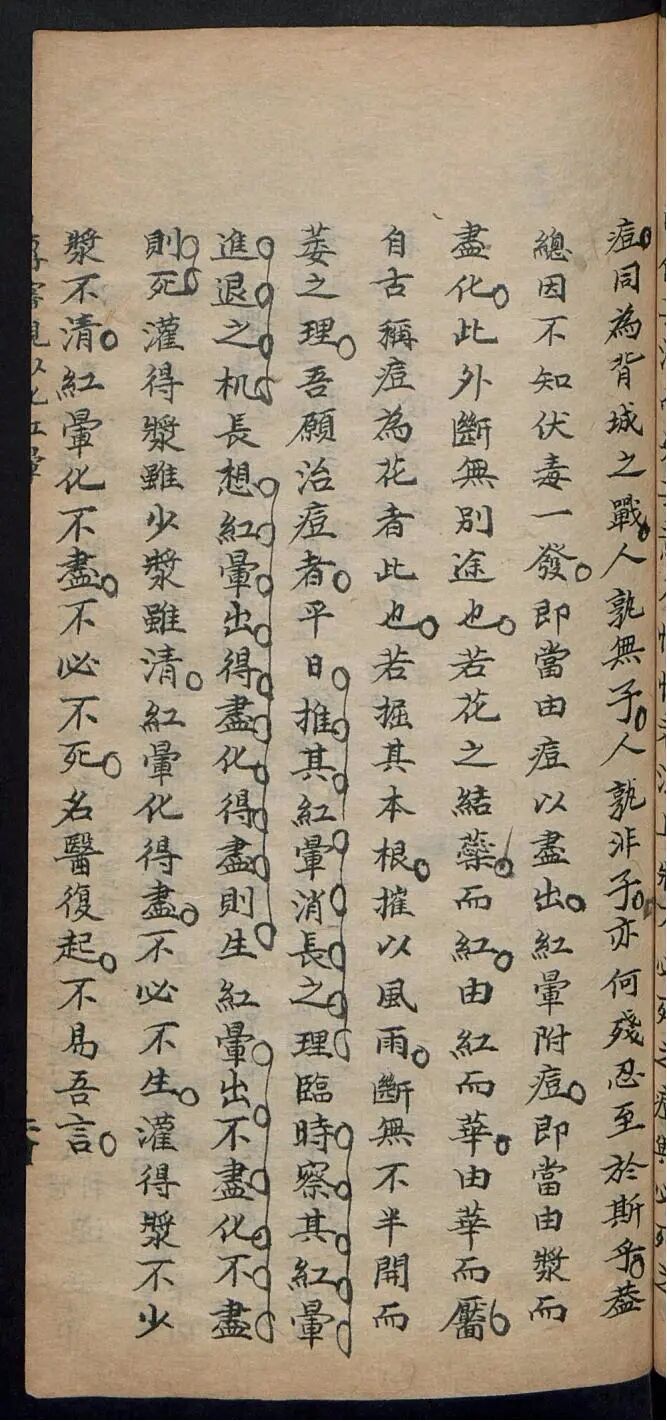 痘同為背城之戰人孰無子人孰非子亦何殘忍至於斯乎蓋
總因不知伏毒一發即當由痘以盡出紅暈附痘即當由漿而
盡化此外斷無別途也若花之結蘂而紅由紅而華由華而靨
自古稱痘為花者此也若掘其本根摧以風雨斷無不半開而
萎之理吾願治痘者平日推其紅暈消長之理臨時察其紅暈
進退之机長想紅暈出得盡化得盡則生紅暈出不盡化不盡
則死灌得漿雖少漿雖清紅暈化得盡不必不生灌得漿不少
漿不清紅暈化不盡不必不死名醫復起不易吾言